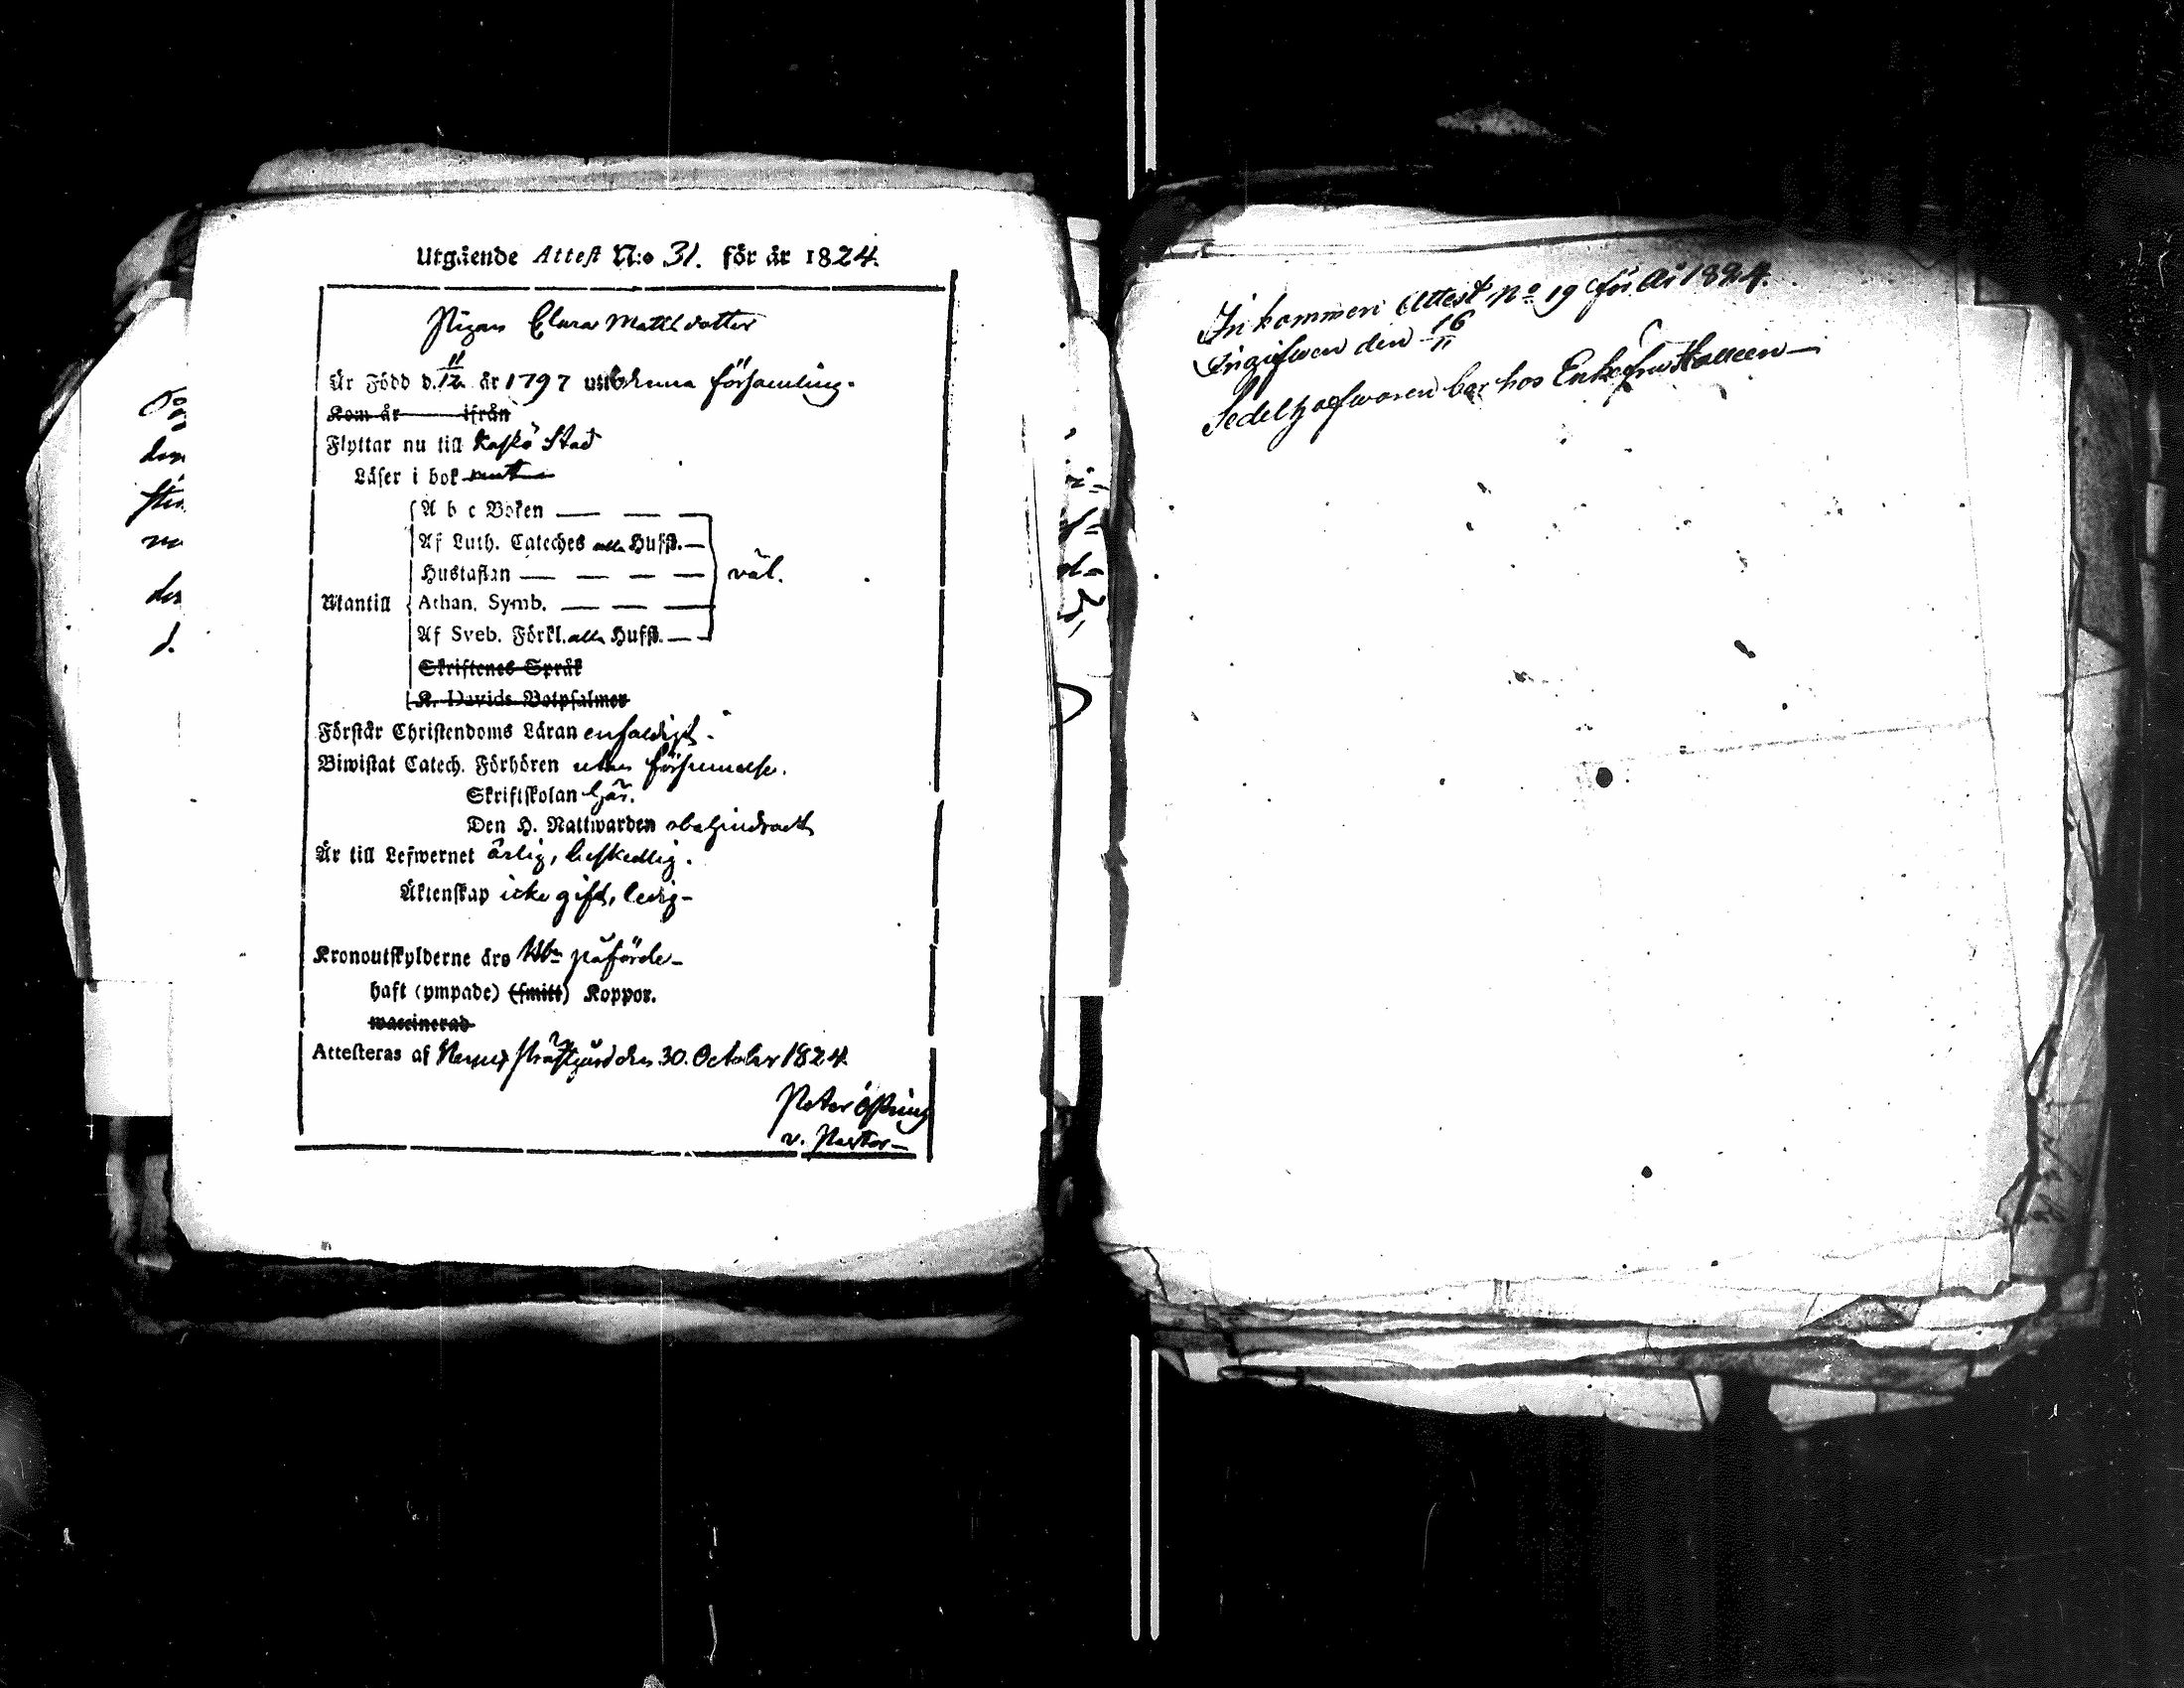 Utgående Attest N:o 31. för år 1824.
Pigan Clara Mattsdotter
Är Född d. 11/12 år 1797 uti denna församling.
Kom år ifrån
Flyttar nu till Kaskö Stad
Läser i bok
A b c Boken
Af Luth. Cateches alla Hufst.
Hustaflan väl.
Utantill Athan. Symb.
Af Sveb. Förkl. alla Hufst.
Skriftenes Språk
K. Davids Botpsalmer
Förstår Christendoms Läran enfaldigt.
Biwistat Catech. Förhören utan försummelse.
Skriftskolan här.
Den H. Nattwarden obehindradt
Är till Lefwernet ärlig, beskedlig.
Äktenskap icke gift, ledig
Kronoutskylderne äro påförde
haft (ympade) (smitt) Koppor.
waccinerad
Attesteras af den 30. October 1824.
Peter
v. Pastor
Inkommen Attest No 19 för År 1824.
Ingifwen den 16/11
Sedelhafwaren bor hos Enkefru